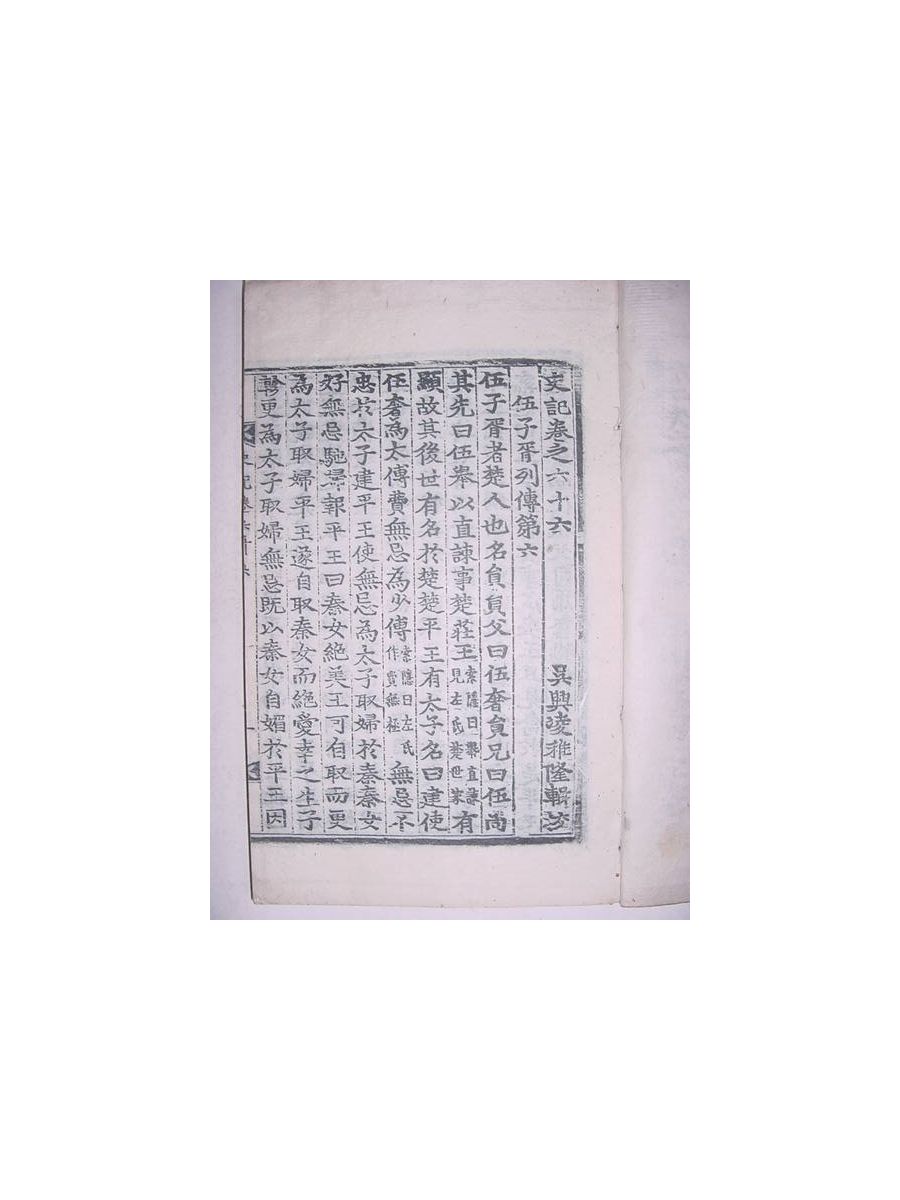 史記卷之六十六 吳興凌稚隆輯校
伍子胥列傳第六
伍子胥者楚人也名員員父曰伍奢員兄曰伍尚
其先曰伍舉以直諫事楚莊王索隱曰舉直諫見左氏楚世家有
顯故其後世有名於楚楚平王有太子名曰建使
伍奢為太傅費無忌為少傅索隱曰左氏作費無極無忌不
忠於太子建平王使無忌為太子取婦於秦秦女
好無忌馳歸報平王曰秦女絶美王可自取而更
為太子取婦平王遂自取秦女而絶愛幸之生子
軫更為太子取婦無忌既以秦女自媚於平王因